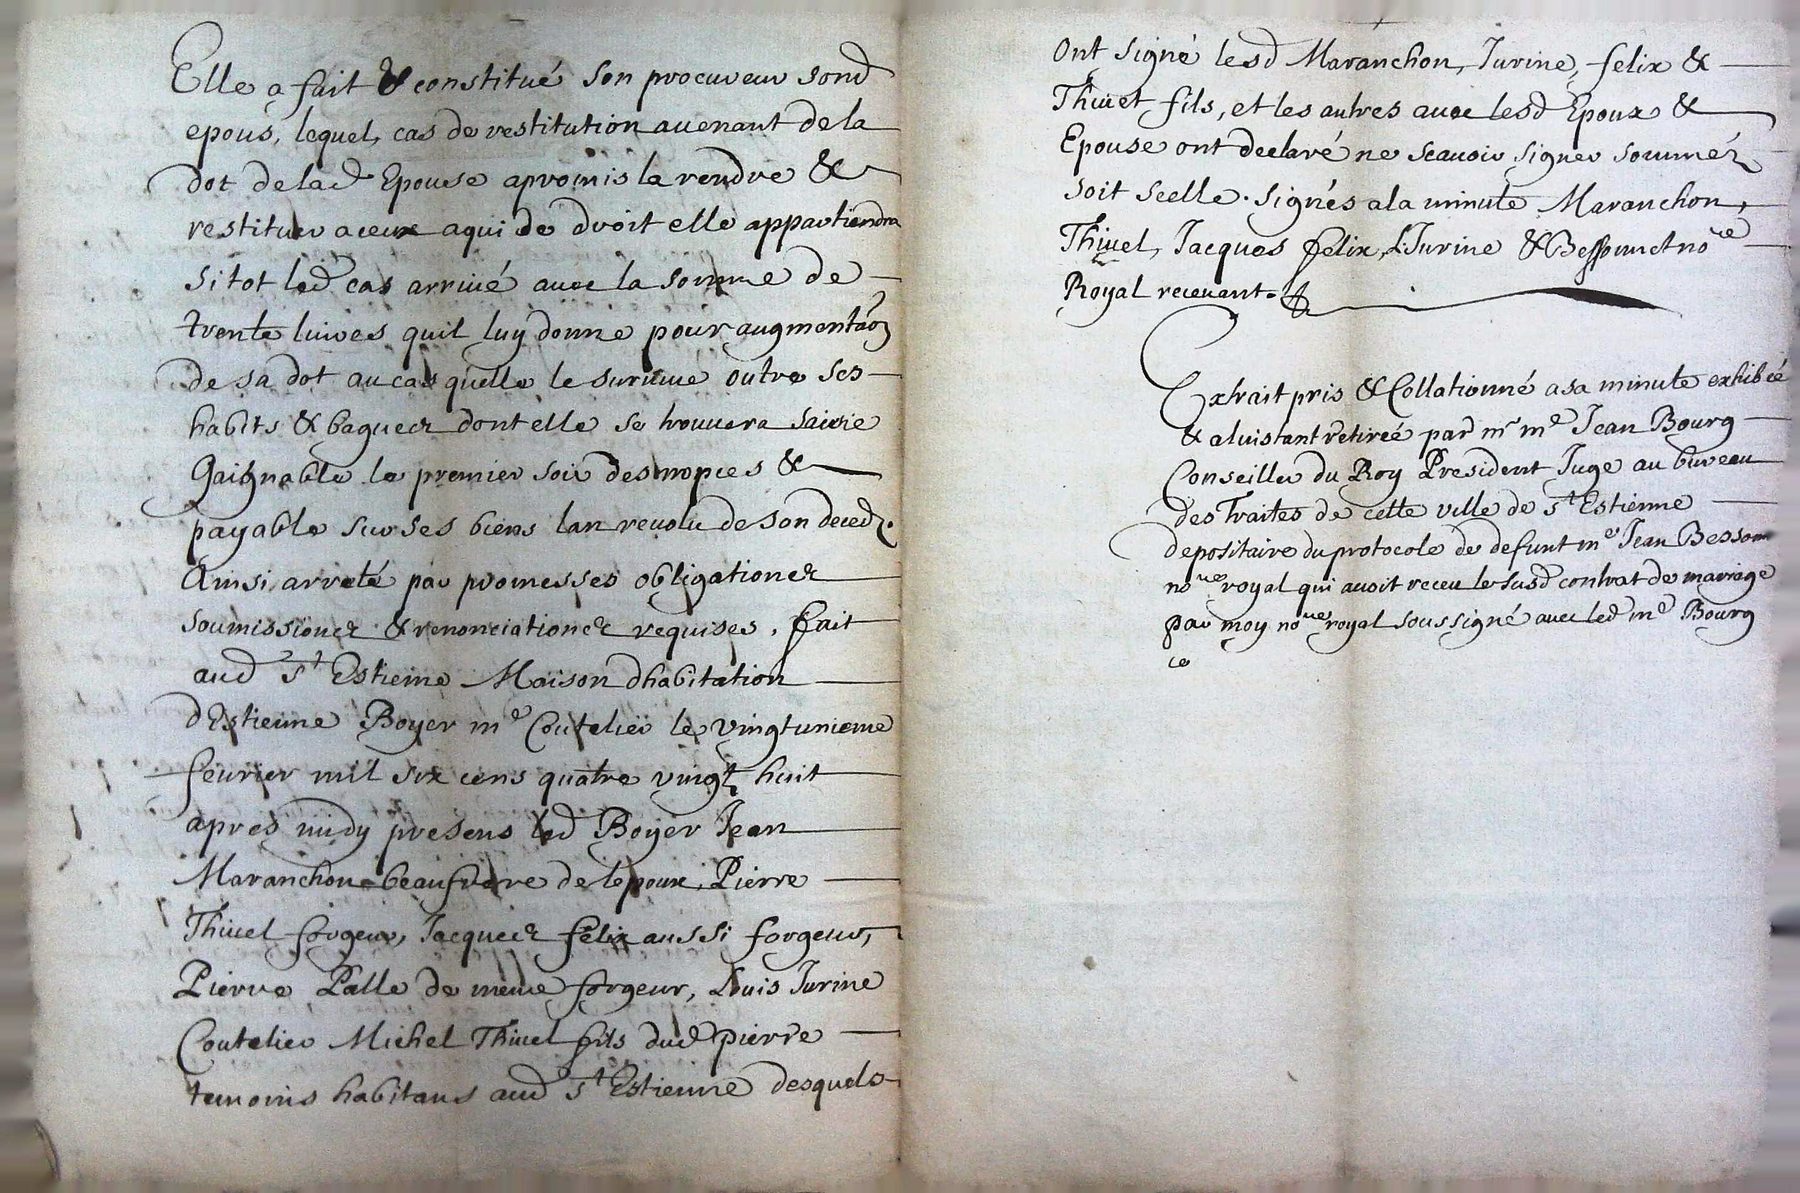 Elle a fait & constitué son procureur sond
epous, lequel, cas de restitution auenant de la
dot de lad Epouse a promis la rendre &
restituer a ceux a qui de droit elle appartiendra
si tot led cas arriué auec la somme de
trente liures quil luy donne pour augmentaon
de sa dot au cas quelle le suruiue outre ses
habits & bagues dont elle se trouuera saisie
Gaignable le premier soir des nopces &
payable sur ses biens lan reuolu de son deced.
Ainsi arreté par promesses obligationes
soumissiones & renonciationes requises, fait
aud St Estienne Maison dhabitation
d'Estienne Boyer me Coutelier le vingtunieme
feurier mil six cens quatre vingt huit
apres midy presens led Boyer Jean
Maranchon beaufrere de lepoux, Pierre
Thiuel forgeur, Jacques felix aussi forgeur,
Pierre Palle de meme forgeur, Louis Jurine
Coutelier Michel Thiuel fils dud pierre
temoins habitans aud St Estienne desquels
Ont signé lesd Maranchon, Jurine, felix &
Thiuet fils, et les autres auec lesd Epoux &
Epouse ont declaré ne scauoir signer sommés
soit scelle. signés a la minute Maranchon,
Thiuel, Jacques felix, L Jurine & Besson not re
Royal receuant.
Extrait pris & Collationné a sa minute exhibéé
& a linstant retireé par mr me Jean Bourg
Conseiller du Roy President Juge au bureau
des Traites de cette ville de St Estienne
depositaire du protocole de defunt me Jean Besson
nore royal qui auoit receu le susd contrat de mariage
par moy nore royal soussigné auec led me Bourg
ce